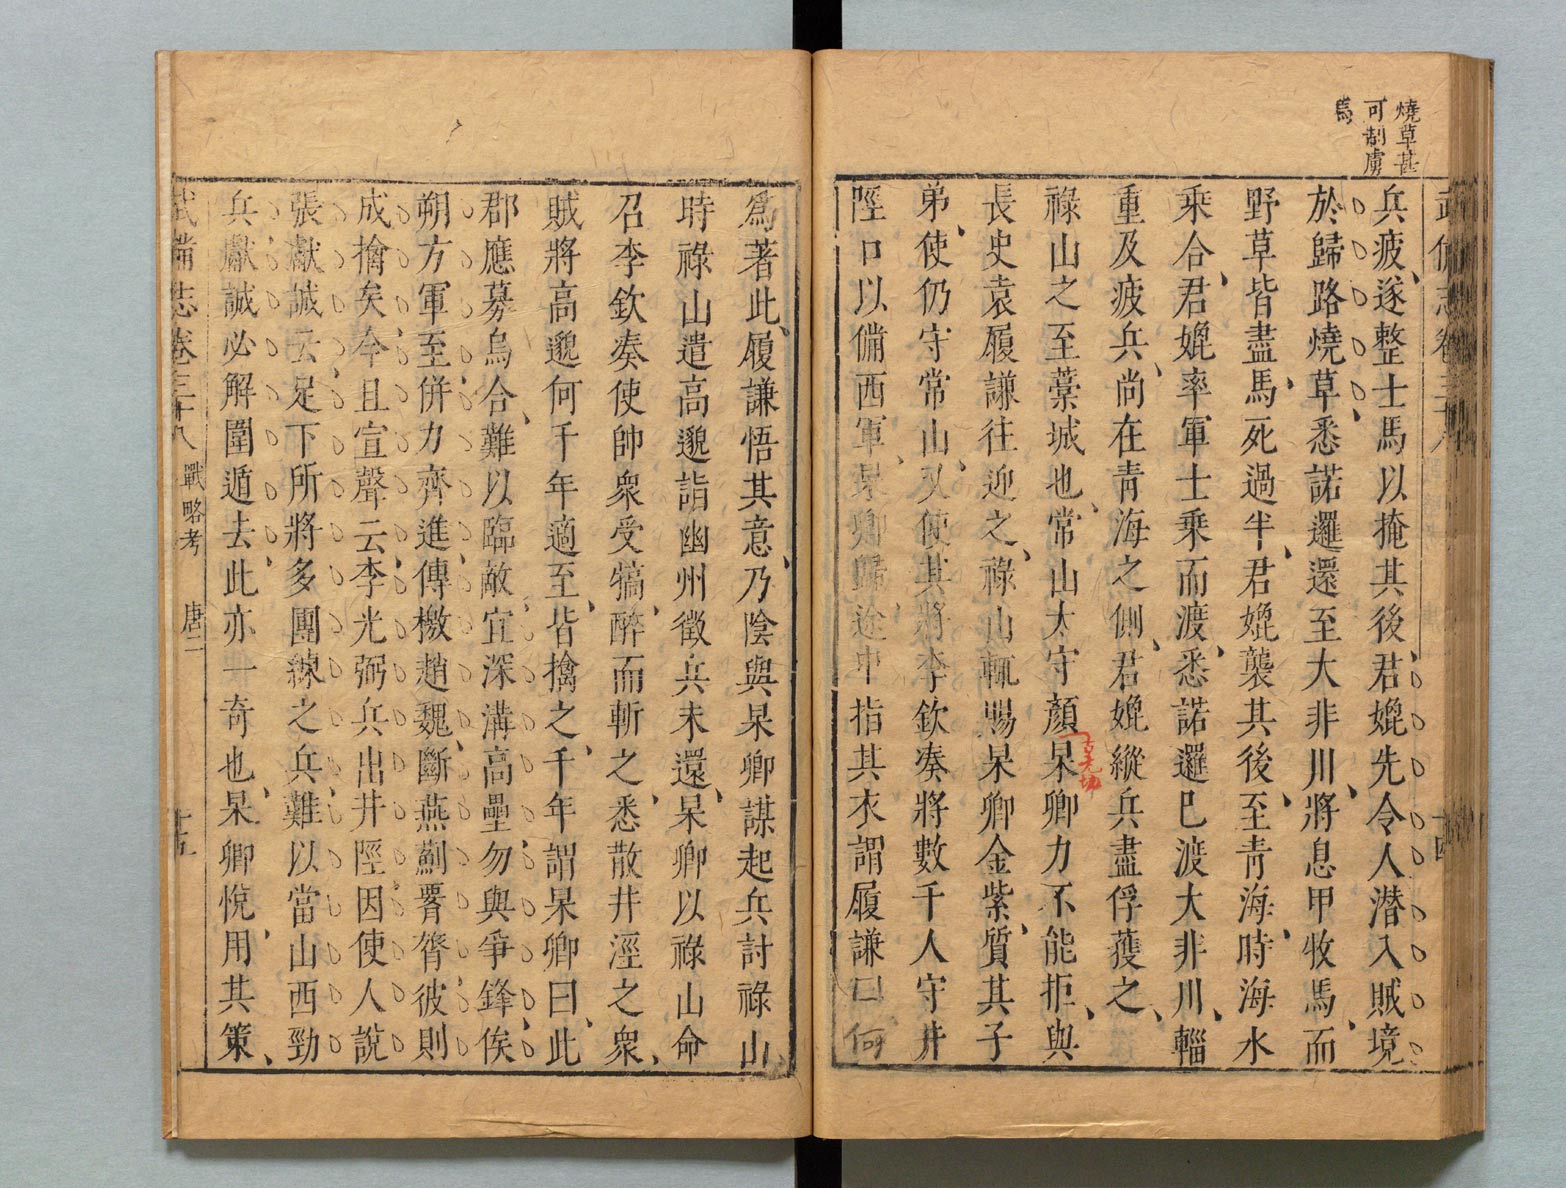 燒草甚
可制虜
馬
武備志卷三十八
十四
兵疲、遂整士馬以掩其後、君㚟先令人潜入賊境
於歸路燒草、悉諾邏還至大非川、將息甲牧馬、而
野草皆盡、馬死過半、君㚟襲其後、至青海、時海水
乘合、君㚟率軍士乘而渡、悉諾邏已渡大非川、輜
重及疲兵、尚在青海之側、君㚟縱兵盡俘獲之、
祿山之至藁城也、常山太守顏杲卿力不能拒、與
長史袁履謙往迎之、祿山輒賜杲卿金紫、質其子
弟、使仍守常山、又使其將李欽湊將數千人守井
陘口以備西軍、杲卿歸途中指其衣謂履謙曰何
爲著此、履謙悟其意、乃陰與杲卿謀起兵討祿山
時祿山遣高邈詣幽州徵兵未還、杲卿以祿山命
召李欽湊使帥衆受犒、醉而斬之、悉散井涇之衆、
賊將高邈何千年適至、皆擒之、千年謂杲卿曰、此
郡應募烏合、難以臨敵、宜深溝高壘、勿與爭鋒、俟
朔方軍至併力齊進、傳檄趙魏、斷燕薊要膂、彼則
成擒矣、今且宣聲云、李光弼兵出井陘因使人說
張獻誠云、足下所將多團練之兵、難以當山西勁
兵獻誠必解圍遁去、此亦一奇也、杲卿悅、用其策、
武備志卷三十八 戰略考 唐二 十五